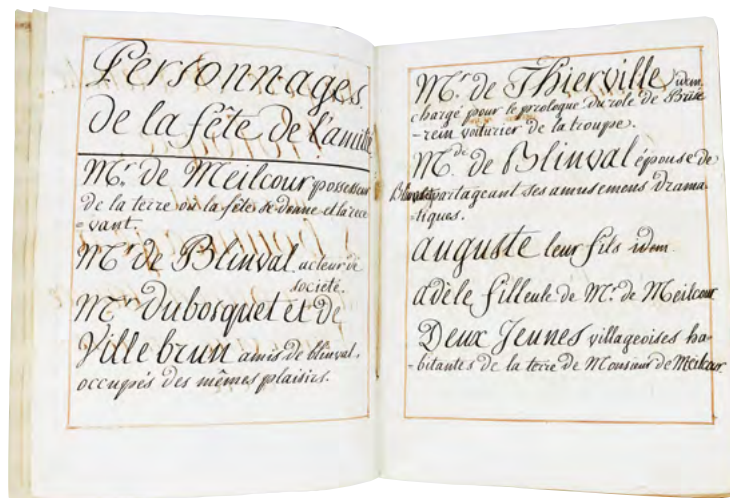 Personnages
de la fête de l'amitié
Mr. de Meilcour possesseur
de la terre où la fête se donne et la rece
=vant.
Mr de Blinval acteur de
société.
Mrs Dubosquet et de
Villebrun amis de blinval,
occupés des mêmes plaisirs.
Mr. de Thierville idem
chargé pour le prologue du role de Brise
-rein voiturier de la troupe.
Mde de Blinval épouse de
Blinval partageant ses amusemens drama
-tiques.
auguste leur fils idem
adèle filleule de Mr. de Meilcour
Deux Jeunes villageoises ha-
-bitantes de la terre de Monsieur de Meilcour.